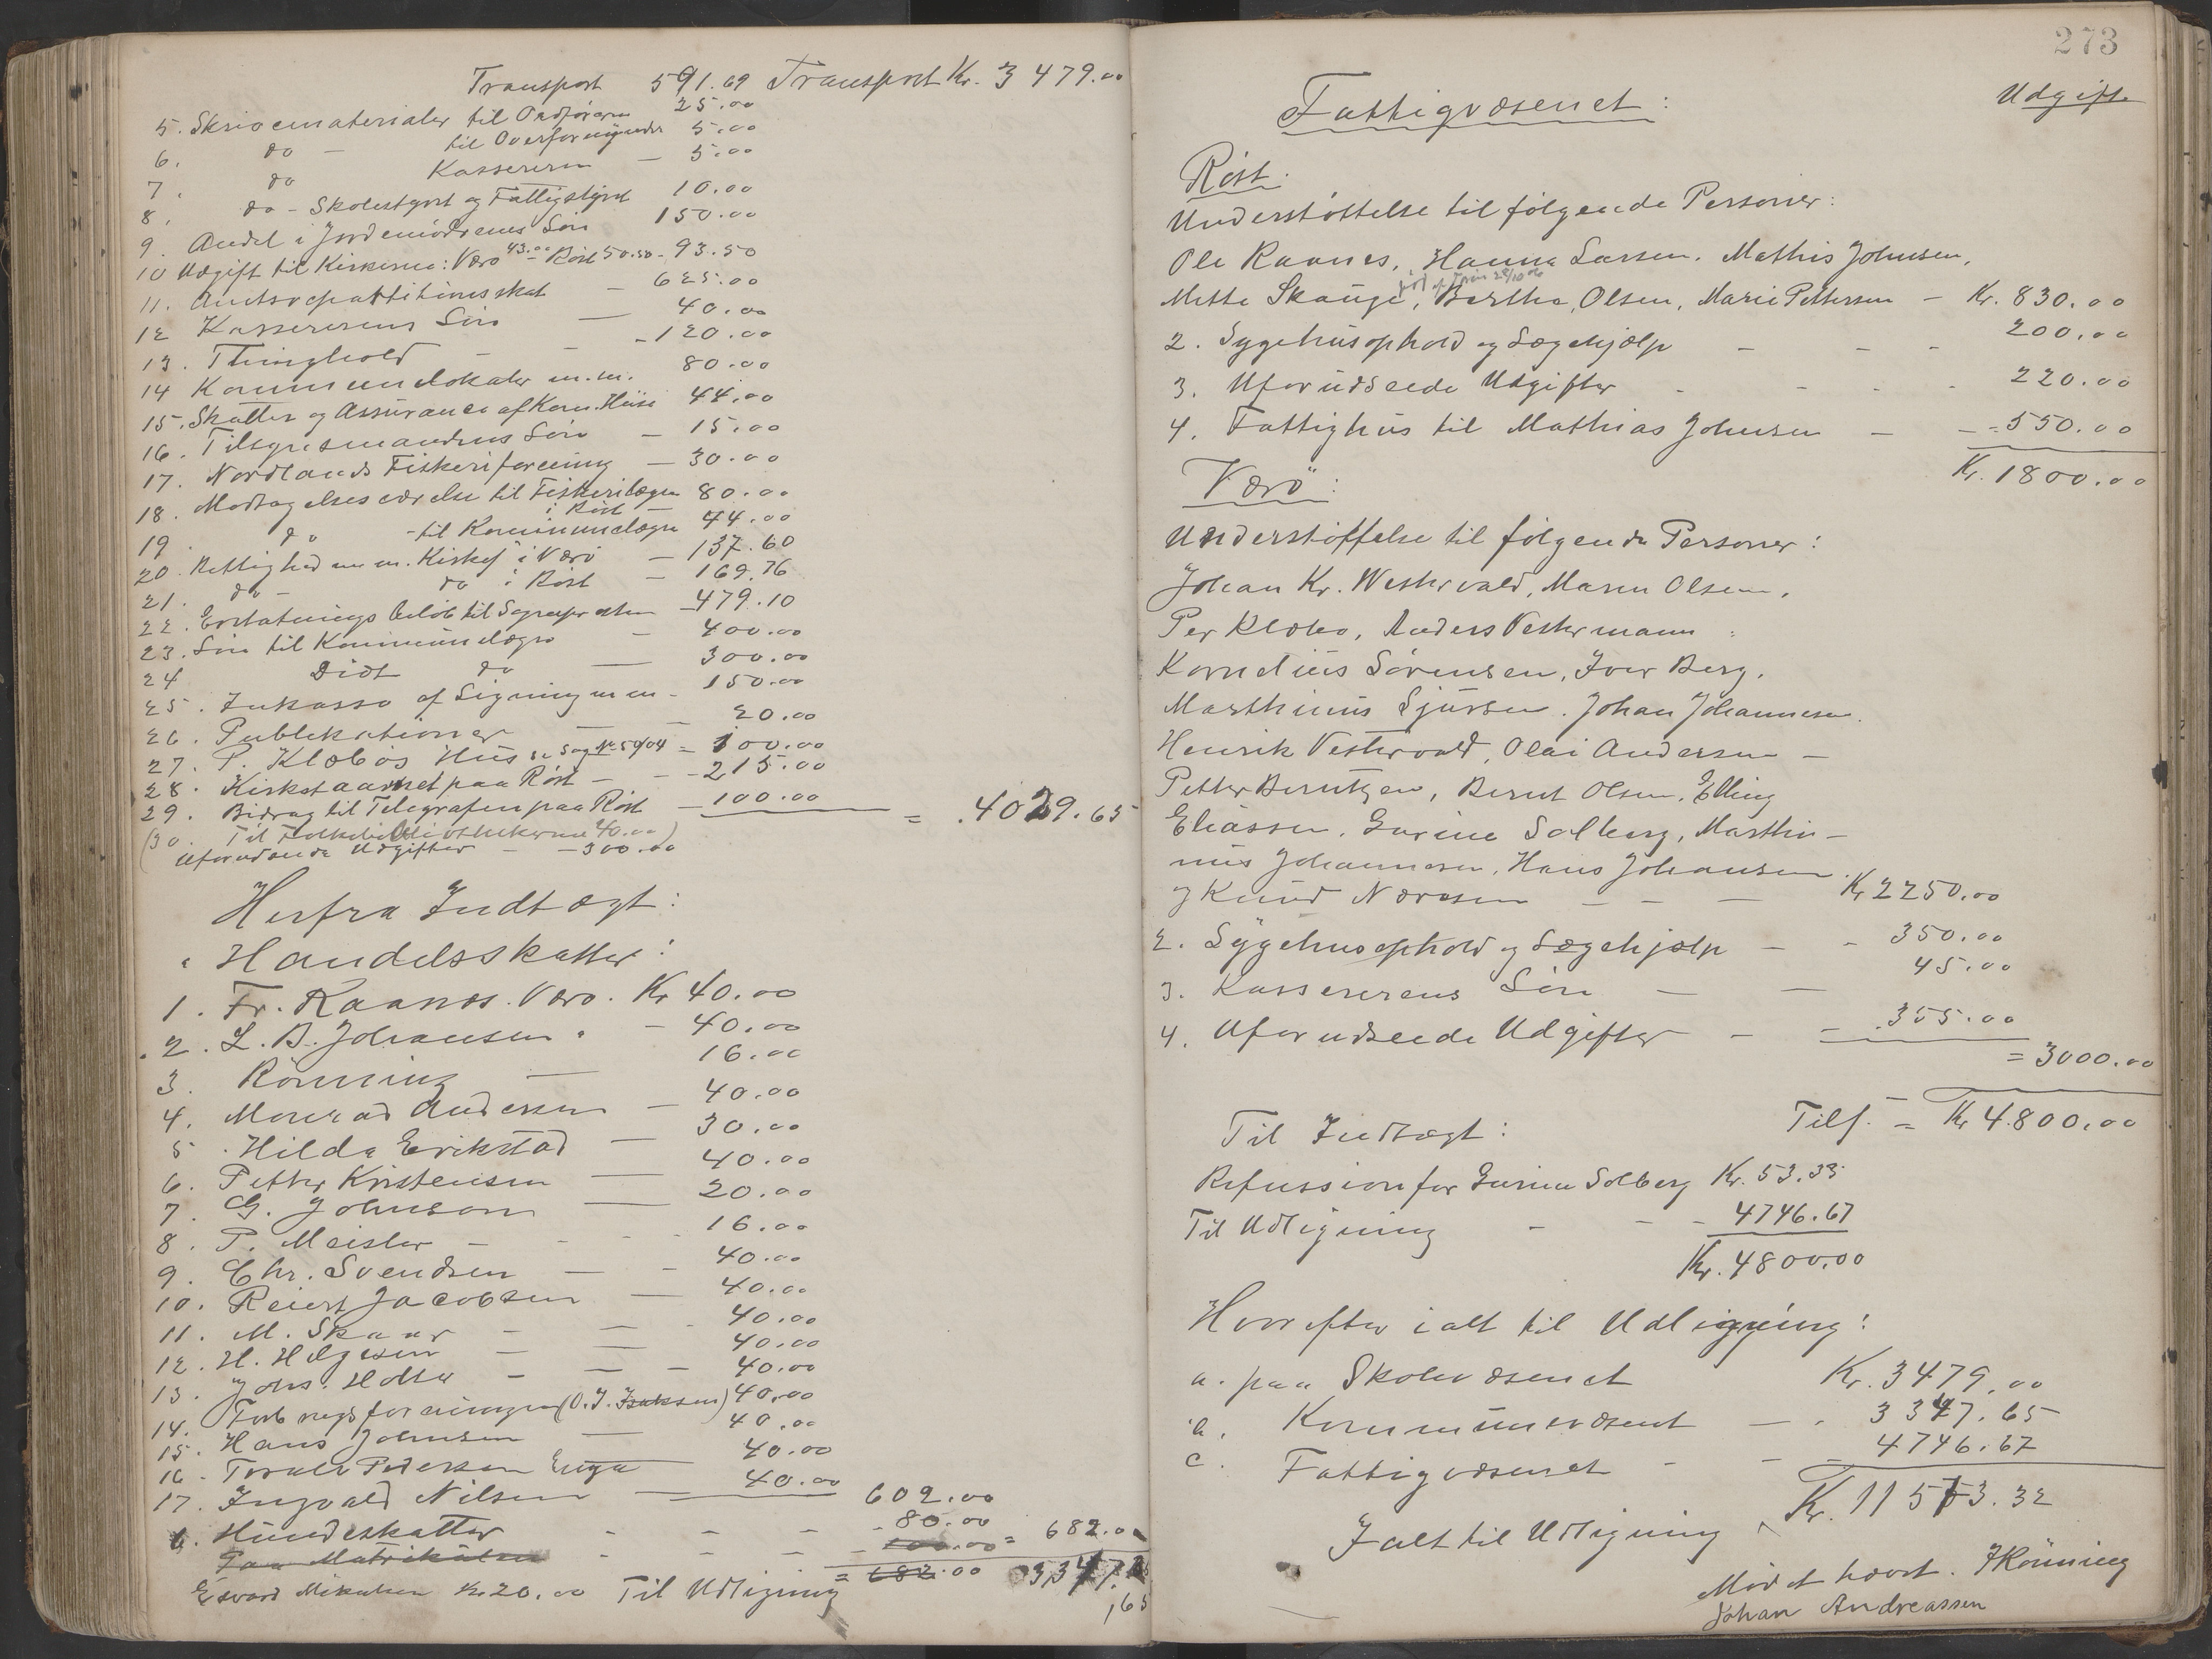 Transport 591.69 Transport Kr. 3 479.00
5. Skrivematerialer til Ordføreren 25.00
6. do — til Overformynder 5.00
7. do Kassereren — 5.00
8. do - Skolestyret og Fattigstyret 10.00
9. Andel i Jordemødrenes Løn 150.00
10 Udgift til Kirkerne: Værö 43.00 Röst 50.50 - 93.50
11. Amtsrepartitionsskat — 625.00
12 Kassererens Løn — 40.00
13. Thinghold — - 120.00
14 Kommunelokaler m.m. 80.00
15. Skatter og Assurance af Kom. Huse 44.00
16. Tilsynsmandens Løn — 15.00
17. Nordlands Fiskeriforening — 30.00
18. Modtagelsesværelse til Fiskerilægen 80.00
i Röst —
19 do - til Kommunelægen 44.00
20. Rettighed m.m. Kirkej i Værö — 137.60
21. do - do i Röst — 169.76
22. Erstatningsbeløb til Sognepresten — 479.10
23. Løn til Kommunelægen — 400.00
24 Didt do — 300.00
25. Inkasso af Ligning m m - 150.00
26. Publikationer — 20.00
27. P. Klæbos Hus se Sag No 50/04 = 100.00
28. Kirketaarnet paa Röst — - 215.00
29. Bidrag til Telegrafen paa Röst — 100.00 = .4029.65
(30. Til Folkebibliothekerne 40.00)
Uforudseede Udgifter — - 300.00
Herfra Indtægt:
a Handelsskatter:
1. Fr. Raanes. Værö. Kr 40.00
2. L. B. Johansen " - 40.00
3. Rønning — 16.00
4. Monrad Andersen — 40.00
5. Hilda Erikstad — 30.00
6. Petter Kristensen — 40.00
7. G. Johnson — 20.00
8. P. Meisler — 16.00
9. Chr. Svendsen — 40.00
10. Reiert Jacobsen — 40.00
11. M. Skaar — 40.00
12. H. Helgesen — 40.00
13. Johs. Holter — 40.00
14. Forbrugsforeningen (O. J. Isaksen) 40.00
15. Hans Johnsen — 40.00
16 - Toralv Pedersen Enga 40.00
17. Ingvald Nilsen — 40.00 602.00
b. Hundeskatter - - - 80.00
Paa Matrikulen - - - 100.00 = 682.00
Edvard Mikalsen Kr. 20.00 Til Udligning = 682.00 3347.
,65
273
Udgift
Fattigvæsenet:
Röst.
Understøttelse til følgende Personer:
Ole Raanes, Hanna Larsen. Mathis Johnsen,
Mette Skauge, Berthe Olsen, Marie Pettersen — Kr. 830.00
2. Sygehusophold og Lægehjælp — - - 200.00
3. Uforudseede Udgifter - - - 220.00
4. Fattighus til Mathias Johnsen — - 550.00
Kr. 1800.00
Værö:
Understøttelse til følgende Personer:
Johan Kr. Westervald, Maren Olsen,
Per Klæbo, Anders Vestermann
Kornelius Sørensen, Iver Berg.
Marthinus Sjursen. Johan Johannesen.
Henrik Vestervold, Olai Andersen —
Petter Berntzen, Bernt Olsen, Elling
Eliassen. Gurine Solberg, Marthi-
nus Johannesen, Hans Johansen.
og Knud Næresen — — — Kr 2250.00
2. Sygehusophold og Lægehjælp — - 350.00
3. Kassererens Løn — — 45.00
4. Uforudseede Udgifter — - 355.00
= 3000.00
Tils. = Kr 4.800.00
Til Indtægt:
Refussion for Gurine Solberg Kr. 53.33
Til Udligning - - - 4746.67
Kr. 4800.00
Hvorefter ialt til Udligning:
a. paa Skolevæsenet Kr. 3479.00
b. Kommunevæsenet — - 3347.65
c. Fattigvæsenet - - 4746.67
Ialt til Udligning Kr. 11573.32
Mødet hævet. Rönning
Johan Andreassen